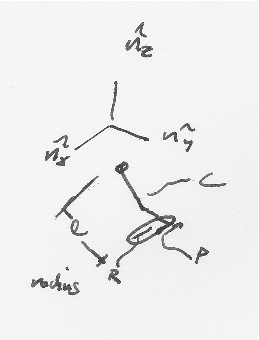 n̂z
n̂x n̂y
C
l
R P
radius